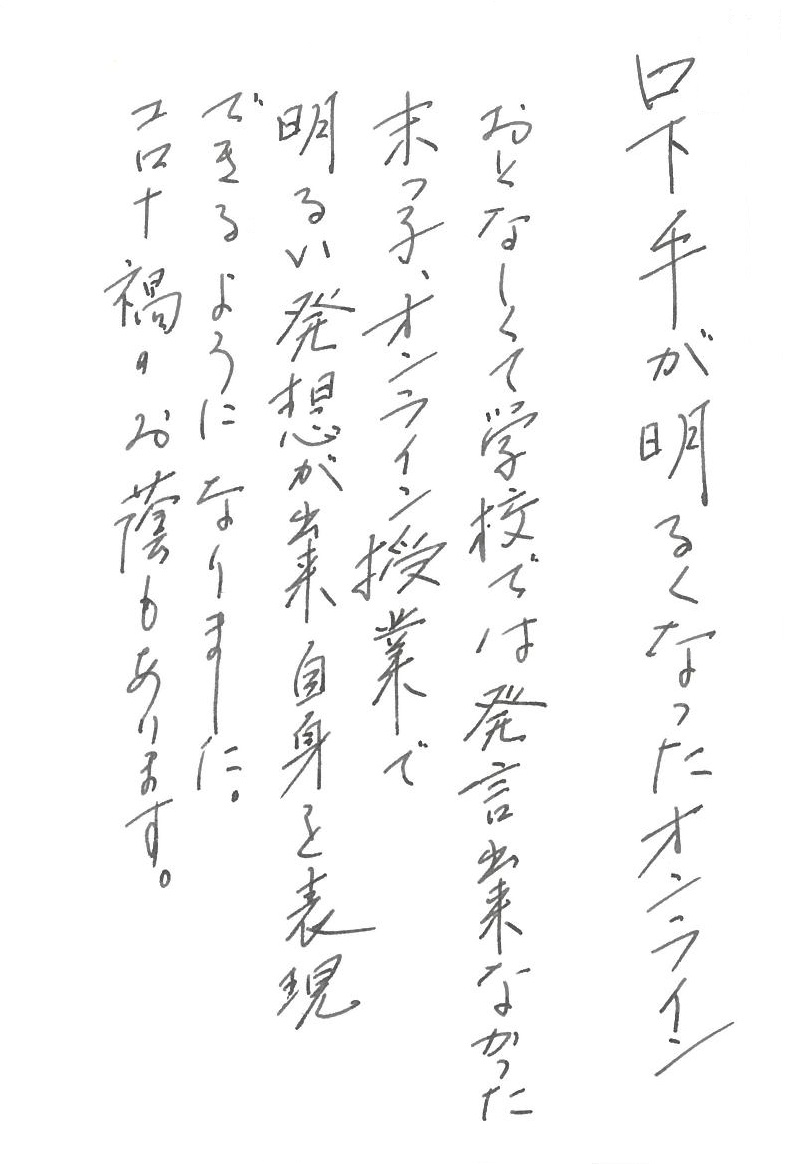 口下手が明るくなったオンライン
おとなしくて学校では発言出来なかった
末っ子、オンライン授業で
明るい発想が出来自身を表現
できるようになりました。
コロナ禍のお蔭もあります。